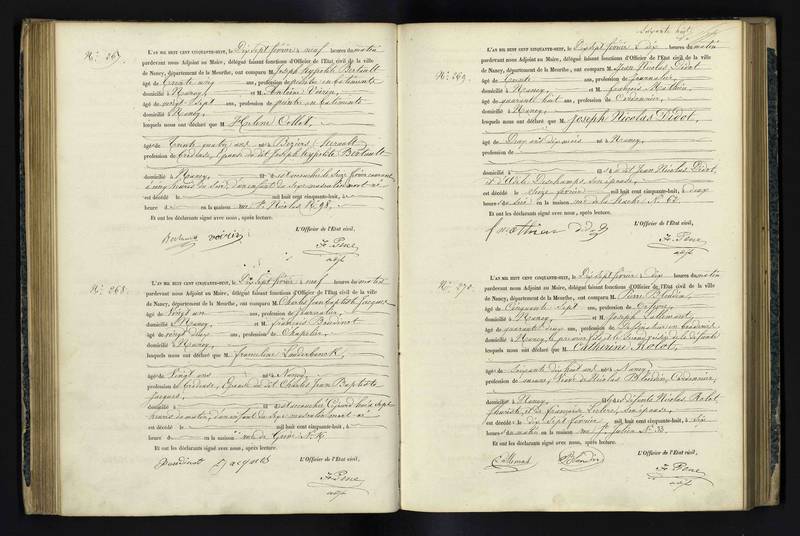 N.° 267.
L'AN MIL HUIT CENT CINQUANTE-HUIT, le Dix sept février à neuf heures du matin
pardevant nous Adjoint au Maire, délégué faisant fonctions d'Officier de l'Etat civil de la ville
de Nancy, département de la Meurthe, ont comparu M. Joseph Hypolite Bertault
âgé de trente cinq ans, profession de peintre en bâtiments
domicilié à Nancy, et M. Antoine Voirin,
âgé de vingt sept ans, profession de peintre en bâtiments
domicilié à Nancy,
lesquels nous ont déclaré que M. Hélène Collot,
âgée de trente quatre ans né à Béziers, Hérault
profession de Brodeuse, Epouse du dit Joseph Hypolite Bertault
domicilié à Nancy, est accouchée le seize février courant
à cinq heures du soir d'un enfant du sexe masculin mort-né
est décédé le mil huit cent cinquante-huit, à
heure d en la maison rue St. Nicolas N.° 98,
Et ont les déclarants signé avec nous, après lecture.
L'Officier de l'Etat civil,
Bertault voirin
N.° 268.
L'AN MIL HUIT CENT CINQUANTE-HUIT, le Dix sept février à neuf heures du matin
pardevant nous Adjoint au Maire, délégué faisant fonctions d'Officier de l'Etat civil de la ville
de Nancy, département de la Meurthe, ont comparu M. Charles Jean Baptiste Jacques
âgé de vingt un ans, profession de Journalier,
domicilié à Nancy, et M. François Boudinot
âgé de vingt deux ans, profession de Chapelier,
domicilié à Nancy,
lesquels nous ont déclaré que M. Franceline
âgée de Vingt ans né à Nancy
profession de Brodeuse, Epouse du dit Charles Jean Baptiste
Jacques,
domicilié à est accouchée Cejourd'hui à sept
heures du matin, d'un enfant du sexe masculin mort-né
est décédé le mil huit cent cinquante-huit, à
heure de en la maison rue de Grève N.° 14
Et ont les déclarants signé avec nous, après lecture.
L'Officier de l'Etat civil,
Boudinot Jacques
adjt
Soixante huit
N.° 269.
L'AN MIL HUIT CENT CINQUANTE-HUIT, le Dix sept février à dix heures du matin
pardevant nous Adjoint au Maire, délégué faisant fonctions d'Officier de l'Etat civil de la ville
de Nancy, département de la Meurthe, ont comparu M. Jean Nicolas Didot
âgé de trente ans, profession de Journalier,
domicilié à Nancy, et M. François Mathieu
âgé de quarante huit ans, profession de Cordonnier,
domicilié à Nancy,
lesquels nous ont déclaré que M. Joseph Nicolas Didot,
âgé de Deux ans dix mois né à Nancy,
profession de
domicilié à fils dudit Jean Nicolas Didot,
et d' Deschamps, son épouse,
est décédé le Seize février mil huit cent cinquante-huit, à deux
heures du soir en la maison rue de la Hache N.° 62
Et ont les déclarants signé avec nous, après lecture.
L'Officier de l'Etat civil,
f mathieu didot
adjt
N.° 270.
L'AN MIL HUIT CENT CINQUANTE-HUIT, le Dix sept février à dix heures du matin
pardevant nous Adjoint au Maire, délégué faisant fonctions d'Officier de l'Etat civil de la ville
de Nancy, département de la Meurthe, ont comparu M. Pierre Blondin,
âgé de Cinquante sept ans, profession de
domicilié à Nancy, et M. Joseph Lallement,
âgé de quarante deux ans, profession de
domicilié à Nancy, le premier fils et le second de la défunte
lesquels nous ont déclaré que M. Catherine Rolot,
âgée de Soixante dix huit ans né à Nancy
profession de Veuve de Nicolas Blondin, Cordonnier,
domicilié à Nancy, défunts Nicolas Rolot,
et de Françoise Leclerc, son épouse,
est décédée le dix sept février mil huit cent cinquante-huit, à six
heures du matin en la maison rue St. Julien N.° 33.
Et ont les déclarants signé avec nous, après lecture.
L'Officier de l'Etat civil,
Lallement Blondin
adjt